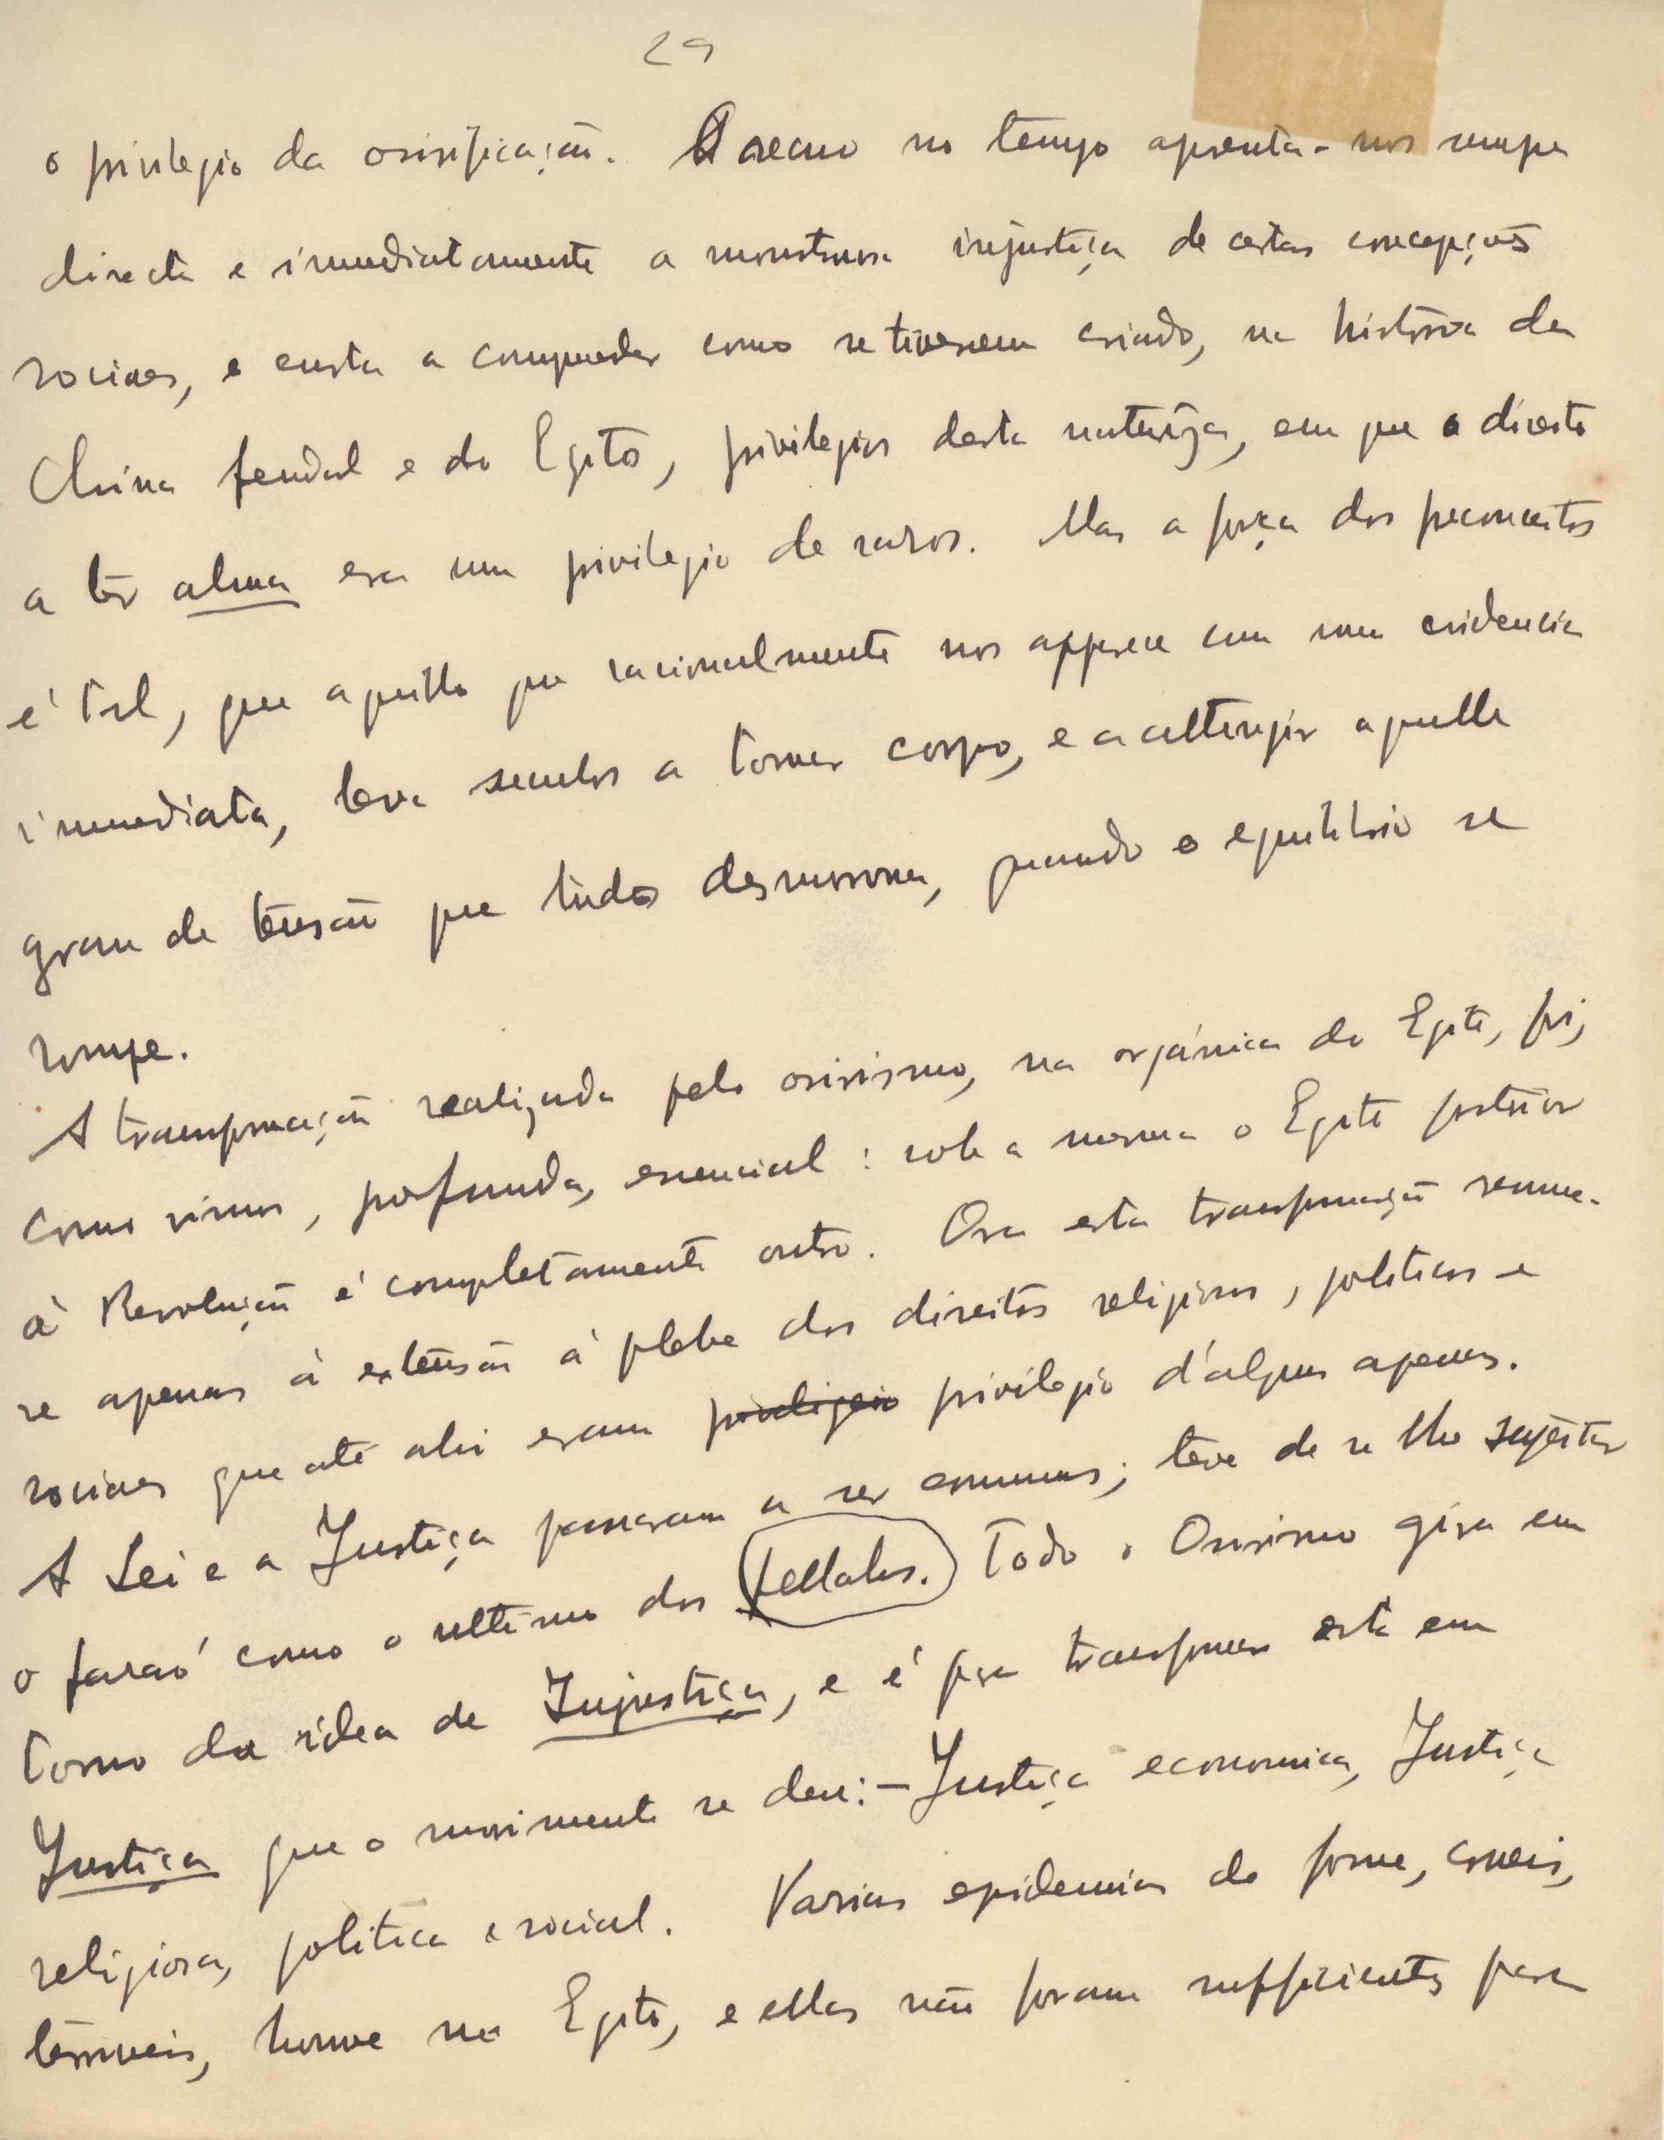 29
o privilegio da osirificação. O recuo no tempo apresenta-nos sempre
directa e immediatamente a monstruosa injustiça de certas concepções
sociaes, e custa a comprehender como se tivessem criado, na historia da
China feudal e do Egito, privilegios desta natureza, em que o direito
a ter alma era um privilegio de raros. Mas a força dos preconceitos
é tal, que aquillo que racionalmente nos apparece com uma evidencia
immediata, leva seculos a tomar corpo, e a attingir aquelle
grau de tensão que tudo desmorona, quando o equilibrio se
rompe.
A transformação realizada pelo osirismo, na orgánica do Egito, foi,
como vimos, profunda, essencial: sob a mesma o Egito posterior
à Revolução é completamente outro. Ora esta transformação resume-
se apenas à extensão à plebe dos direitos religiosos, politicos e
sociaes que até ahi eram privilegio privilegio d'alguns apenas.
A Lei e a Justiça passaram a ser communs; teve de se lhe sujeitar
o faraó como o ultimo dos fellahs. Todo o Osirismo gira em
torno da idea de Injustiça, e é para transformar esta em
Justiça que o movimento se deu: – Justiça economica, Justiça
religiosa, politica e social. Varias epidemias de fome, crueis,
terriveis, houve no Egito, e ellas não foram sufficientes para